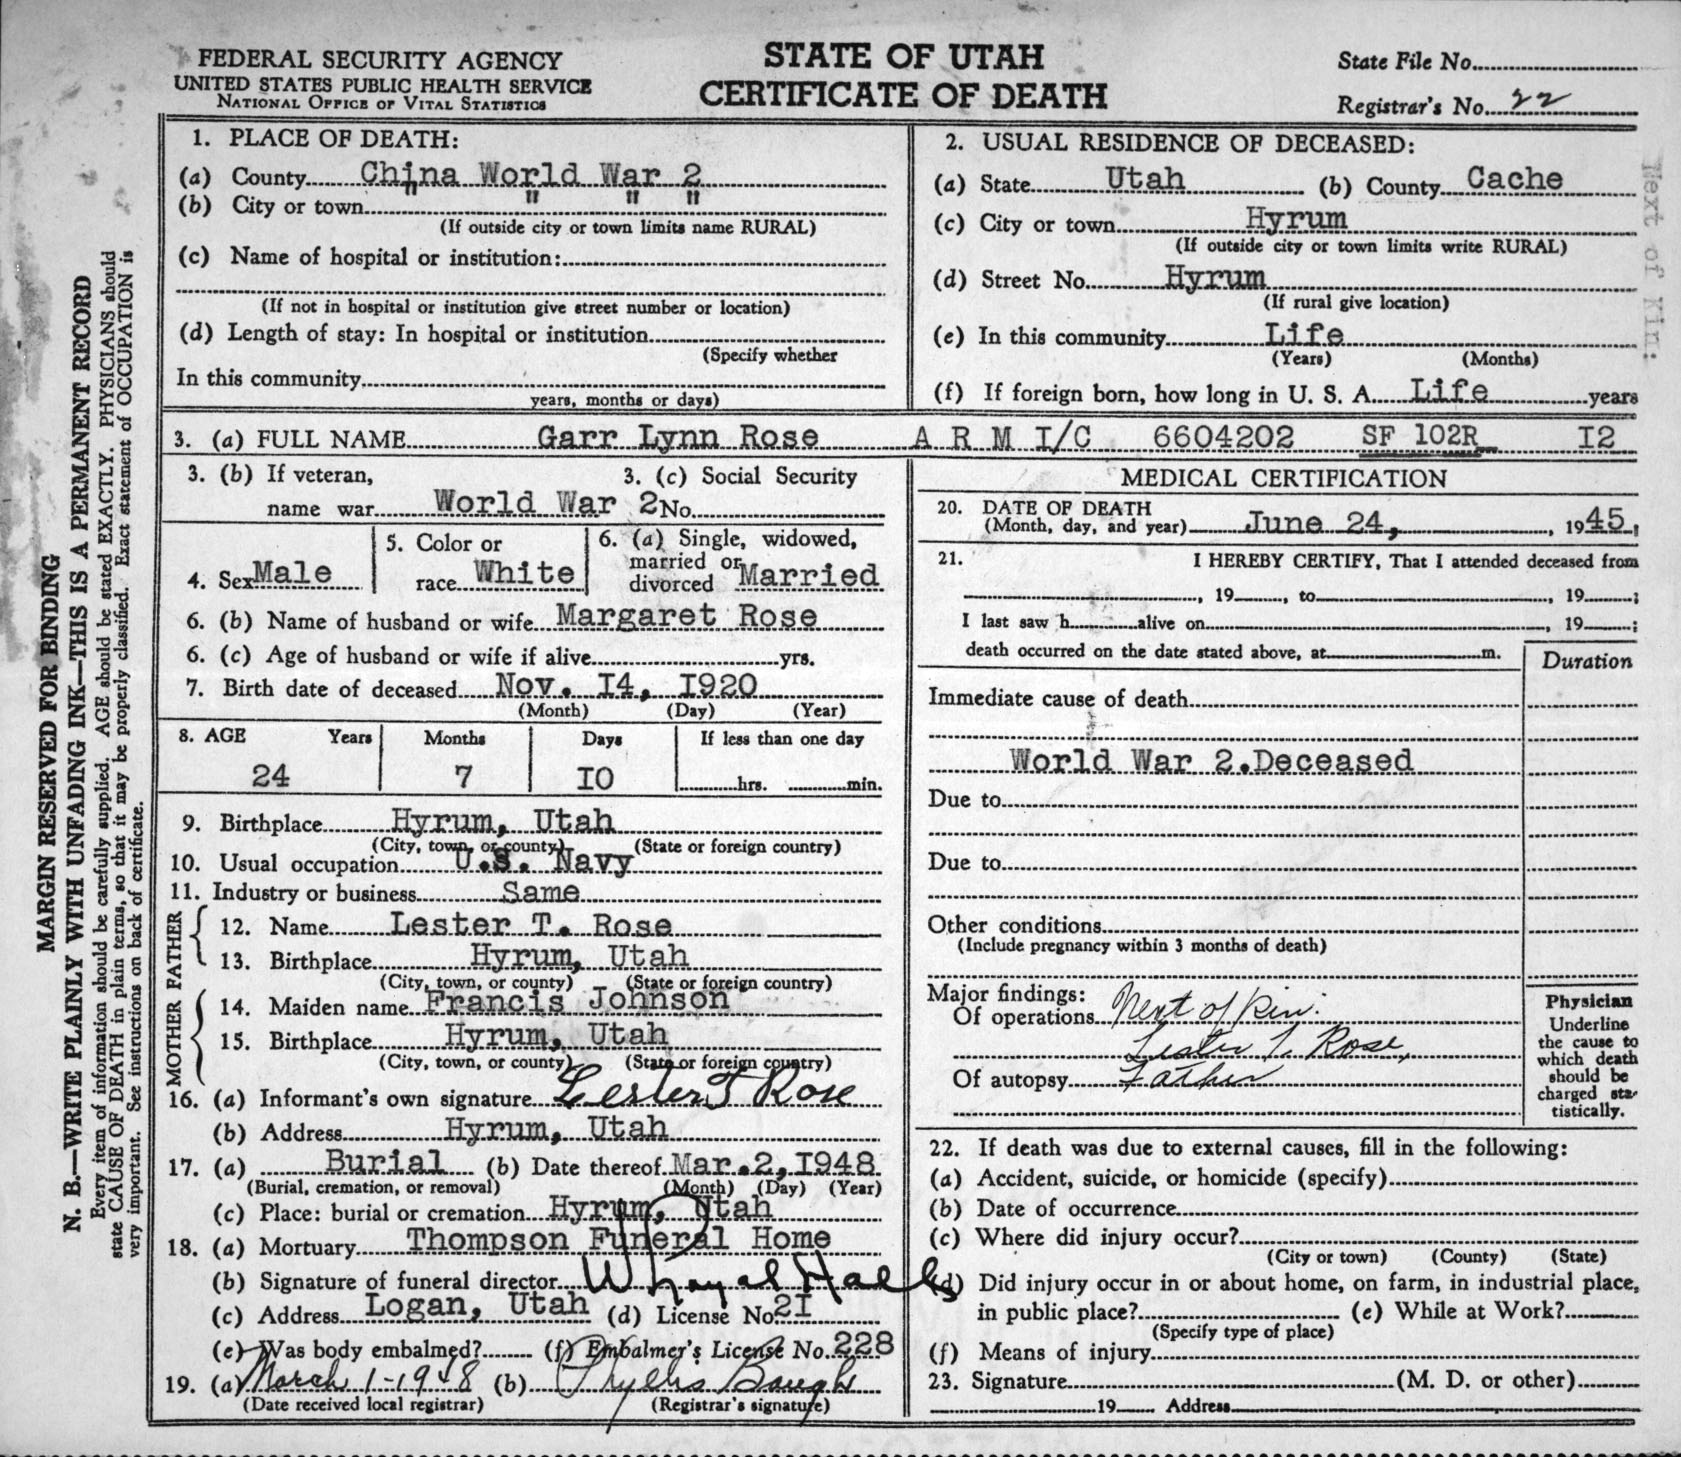 FEDERAL SECURITY AGENCY
UNITED STATES PUBLIC HEALTH SERVICE
NATIONAL OFFICE OF VITAL STATISTICS
STATE OF UTAH
CERTIFICATE OF DEATH
State File No.
Registrar's No. 22
MARGIN RESERVED FOR BINDING
N. B.—WRITE PLAINLY WITH UNFADING INK—THIS IS A PERMANENT RECORD
Every item of information should be carefully supplied. AGE should be stated EXACTLY. PHYSICIANS should
state CAUSE OF DEATH in plain terms, so that it may be properly classified. Exact statement of OCCUPATION is
very important. See instructions on back of certificate.
1. PLACE OF DEATH:
(a) County China World War 2
(b) City or town " " " "
(If outside city or town limits name RURAL)
(c) Name of hospital or institution:
(If not in hospital or institution give street number or location)
(d) Length of stay: In hospital or institution
(Specify whether
In this community
years, months or days)
2. USUAL RESIDENCE OF DECEASED:
(a) State Utah (b) County Cache
(c) City or town Hyrum
(If outside city or town limits write RURAL)
(d) Street No. Hyrum
(If rural give location)
(e) In this community Life
(Years) (Months)
(f) If foreign born, how long in U. S. A. Life years
Next of Kin:
3. (a) FULL NAME Garr Lynn Rose A R M I/C 6604202 SF 102R I2
3. (b) If veteran, 3. (c) Social Security
name war World War 2 No.
4. Sex Male
5. Color or
race White
6. (a) Single, widowed,
married or
divorced Married
6. (b) Name of husband or wife Margaret Rose
6. (c) Age of husband or wife if alive yrs.
7. Birth date of deceased Nov. I4, I920
(Month) (Day) (Year)
8. AGE Years Months Days If less than one day
24 7 IO hrs. min.
9. Birthplace Hyrum, Utah
(City, town, or county) (State or foreign country)
10. Usual occupation U.S. Navy
11. Industry or business Same
FATHER
12. Name Lester T. Rose
13. Birthplace Hyrum, Utah
(City, town, or county) (State or foreign country)
MOTHER
14. Maiden name Francis Johnson
15. Birthplace Hyrum, Utah
(City, town, or county) (State or foreign country)
16. (a) Informant's own signature Lester T Rose
(b) Address Hyrum, Utah
17. (a) Burial (b) Date thereof Mar.2,I948
(Burial, cremation, or removal) (Month) (Day) (Year)
(c) Place: burial or cremation Hyrum, Utah
18. (a) Mortuary Thompson Funeral Home
(b) Signature of funeral director W Loyal Hall
(c) Address Logan, Utah (d) License No. 2I
(e) Was body embalmed? (f) Embalmer's License No. 228
19. (a) March 1-1948 (b) Phyllis Baugh
(Date received local registrar) (Registrar's signature)
MEDICAL CERTIFICATION
20. DATE OF DEATH
(Month, day, and year) June 24, , 1945,
21. I HEREBY CERTIFY, That I attended deceased from
, 19 , to , 19 ;
I last saw h alive on , 19 ;
death occurred on the date stated above, at m.
Duration
Immediate cause of death
World War 2.Deceased
Due to
Due to
Other conditions
(Include pregnancy within 3 months of death)
Major findings:
Of operations Next of Kin:
Lester T. Rose,
Of autopsy Father
Physician
Underline
the cause to
which death
should be
charged sta-
tistically.
22. If death was due to external causes, fill in the following:
(a) Accident, suicide, or homicide (specify)
(b) Date of occurrence
(c) Where did injury occur?
(City or town) (County) (State)
(d) Did injury occur in or about home, on farm, in industrial place,
in public place? (e) While at Work?
(Specify type of place)
(f) Means of injury
23. Signature (M. D. or other)
19 Address